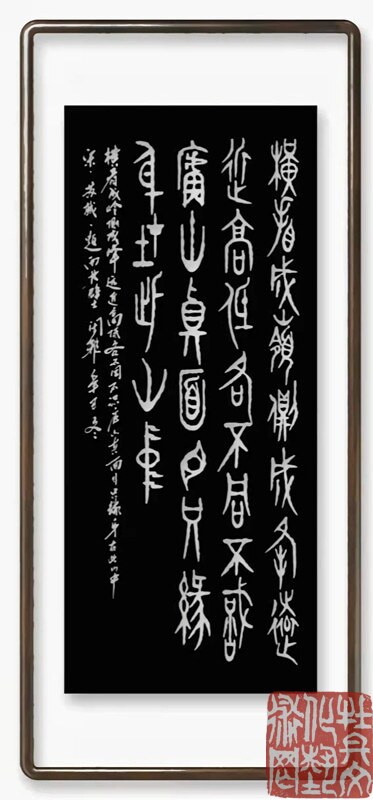 橫看成嶺側成峰遠
近高低各不同不識
廬山真面目只緣
身在此山中
横看成岭侧成峰远近高低各不同不识庐山真面目只缘身在此山中
宋·苏轼·题西林壁